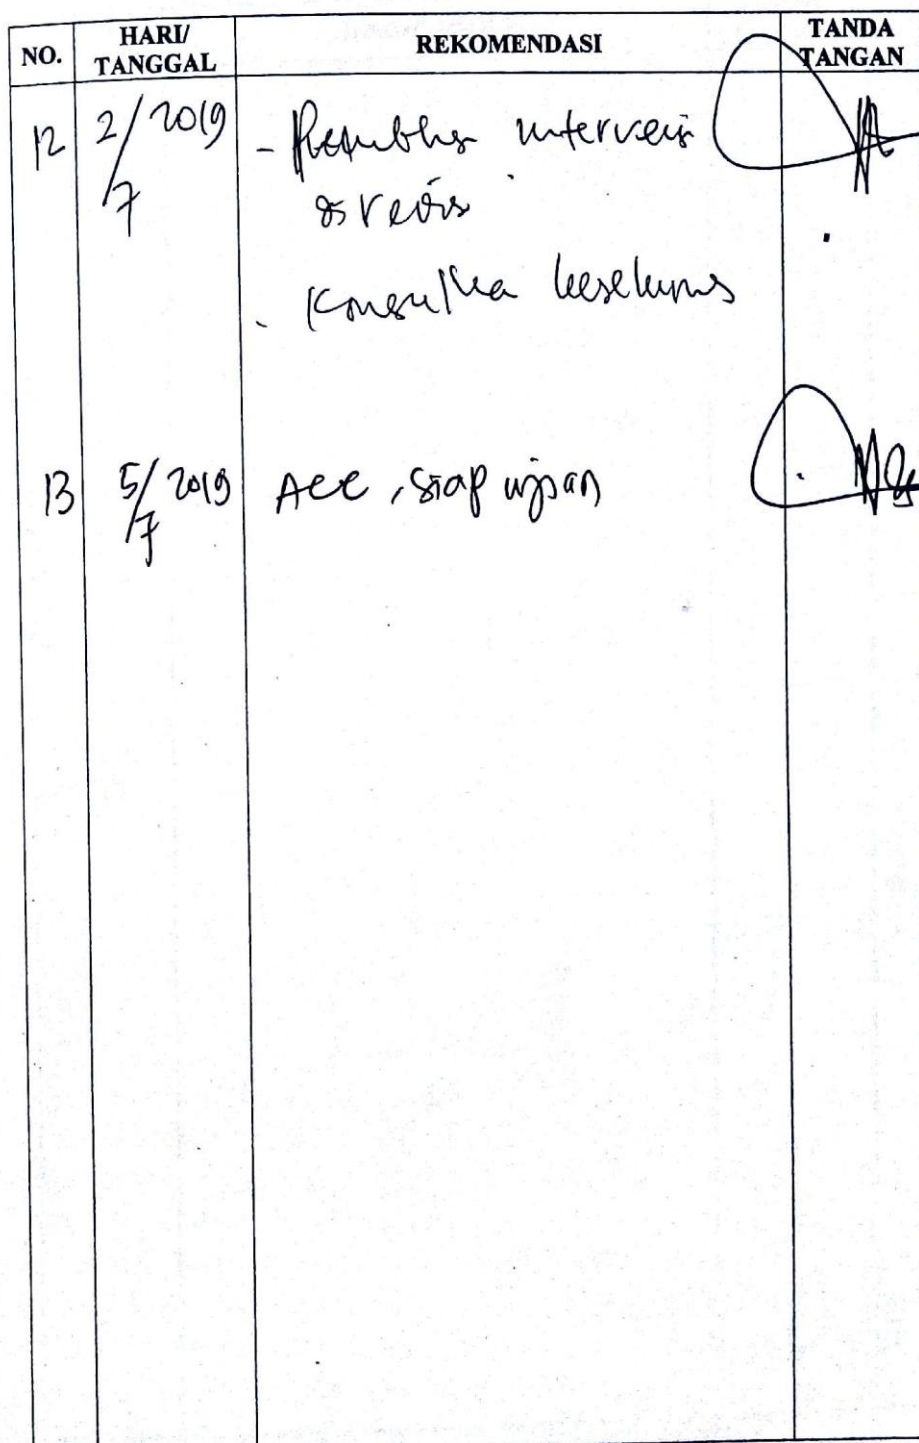 NO. HARI/ TANGGAL REKOMENDASI TANDA TANGAN
12 2/7 2019 - intervensi
direvisi
- Konsulka
13 5/7 2019 Acc, siap ujian